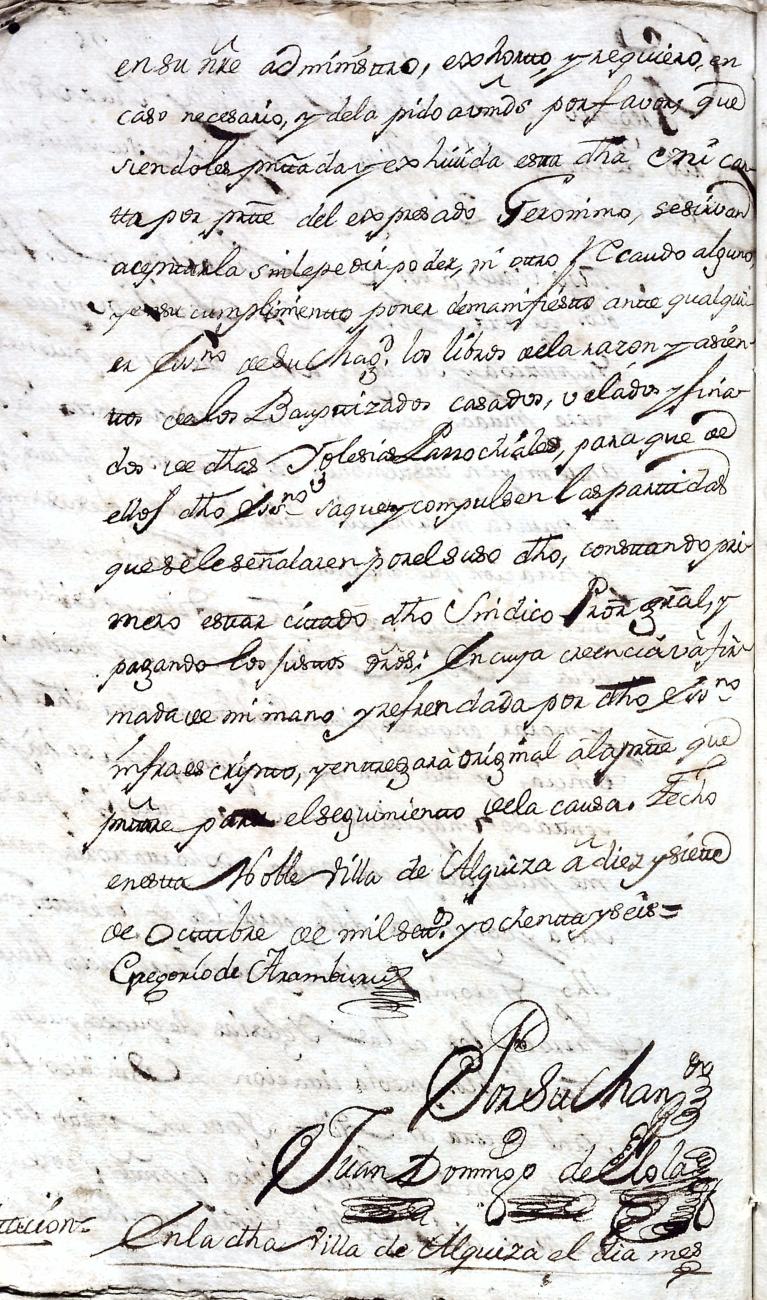 en su nr̃e administro, exhorto, y requiero, en
caso necesario, y dela pido a vm̃ds por favor, que
siendoles pñtada y exhiuida esta dha mi car
ta por prte del expresado Geronimo, se sirvan
aceptarla sin le pedir poder, ni otro recaudo alguno,
y en su cumplimiento poner de manifiesto ante qualqui
er Essno de su Magd. los libros de la razon y asien
tos de los Bauptizados casados, velados y fina
dos de dhas Yglesias Parrochiales, para que de
ellos dho Essno saque y compulsen las partidas
que se le señalaren por el suso dho, constando pri
mero estar citado dho Sindico Pror gral, y
pagando los justos dros: En cuya creencia và fir
mada de mi mano y refrendada por dho Essno
infraescripto, y entregarà original à la prte que
pñtare para el seguimiento de la causa. Fecho
en esta Noble Villa de Alquiza à diez y siete
de Octubre de mil setos. y ochenta y seis=
Gregorio de Aramburu
Por su Man
Juan Domingo de Elola
tacion=
En la dha Villa de Alquiza el dia mes